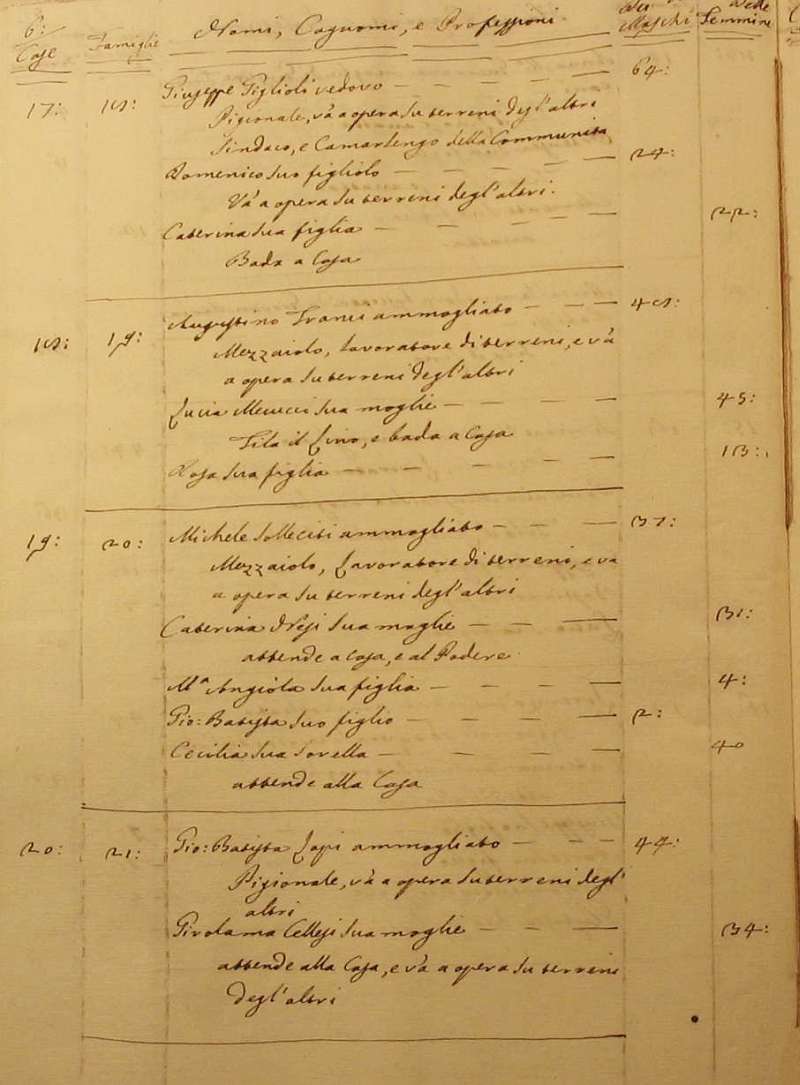 6:
Case Famiglie Nomi, Cognomi, e Professioni Dei Maschi Delle Femmine
17: 18: Giuseppe Giglioli vedovo — — — — 64:
Pigionale, và a opera su terreni degl'altri
Sindaco, e Camarlengo della Communità
Domenico suo figliolo — — — — 24:
Và a opera su terreni degl'altri.
Caterina sua figlia — — — — 22:
Bada a Casa
18: 19: Augustino Franci ammogliato — — — 48:
Mezzaiolo, lavoratore di terreni, e và
a opera su terreni degl'altri
Lucia Meucci sua moglie — — — — 45:
Fila il Lino, e bada a Casa
Rosa sua figlia — — — — — 13:
19: 20: Michele Solleciti ammogliato — — — 37:
Mezzaiolo, Lavoratore di terreni, e va
a opera su terreni degl'altri
Caterina Nesi sua moglie — — — 31:
attende a casa, e al Podere
Mª Angiola sua figlia — — — — 4:
Gio: Batista suo figlio — — — — 2:
Cecilia sua sorella — — — — 40
attende alla Casa
20: 21: Gio: Batista Lapi ammogliato — — — 44:
Pigionale, và a opera su terreni degl'
altri
Girolama Cellesi sua moglie — — — 34:
attende alla Casa, e và a opera su terreni
degl'altri